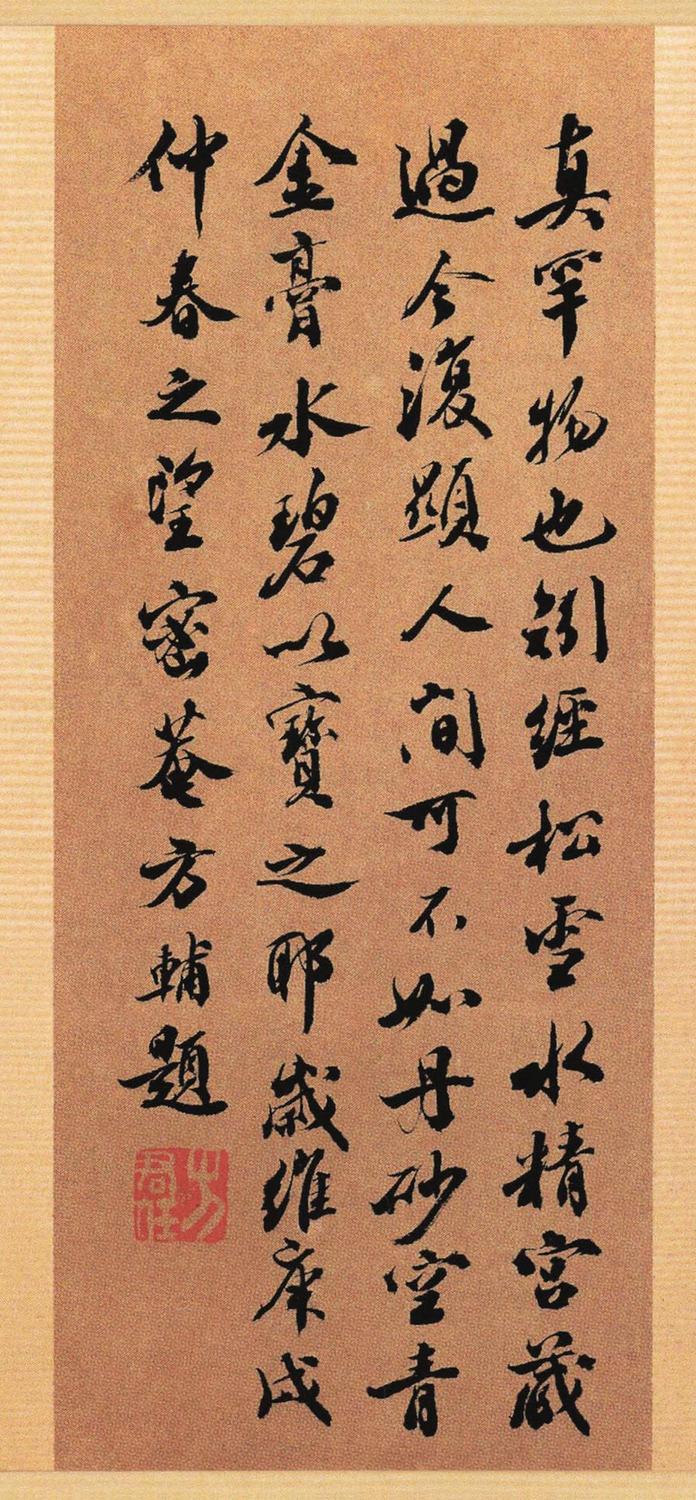 真罕物也矧經松雪水精宮藏
過今復顯人間可不如丹砂空青
金膏水碧以寶之耶歲維庚戌
仲春之望密菴方輔題